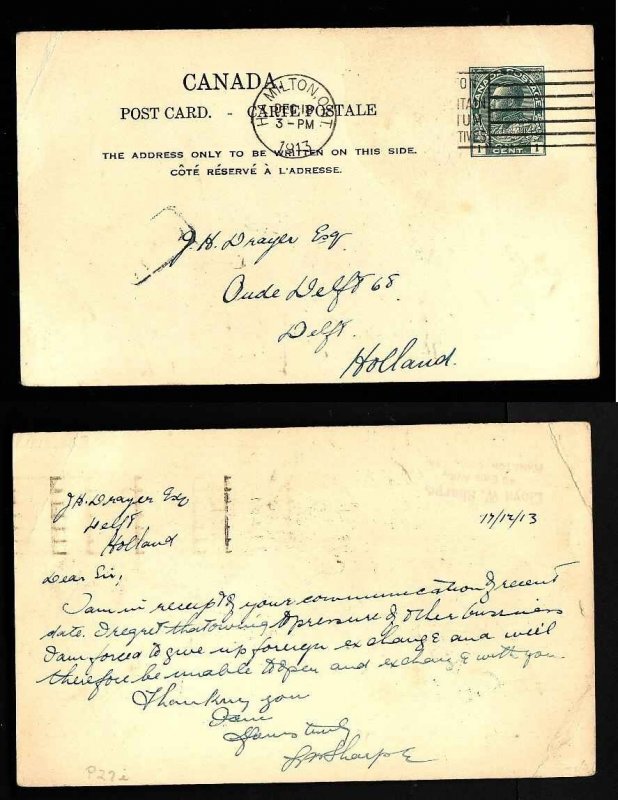 CANADA
POST CARD. - CARTE POSTALE
HAMILTON, ONT.
DEC 18
3-PM
1913
CANADA POSTAGE
1 CENT 1
THE ADDRESS ONLY TO BE WRITTEN ON THIS SIDE.
CÔTÉ RÉSERVÉ À L'ADRESSE.
J. H. Drayer Esq
Oude Delft 68
Delft.
Holland.
Lloyd W. Sharpe
J H. Drayer Esq
Delft
Holland
17/12/13
Dear Sir;
I am in receipt of your communication of recent
date. I regret that owing to pressure of other business
I am forced to give up foreign exchange and will
therefore be unable to open and exchange with you.
Thanking you
I am
Yours truly
LWSharpe
P27i